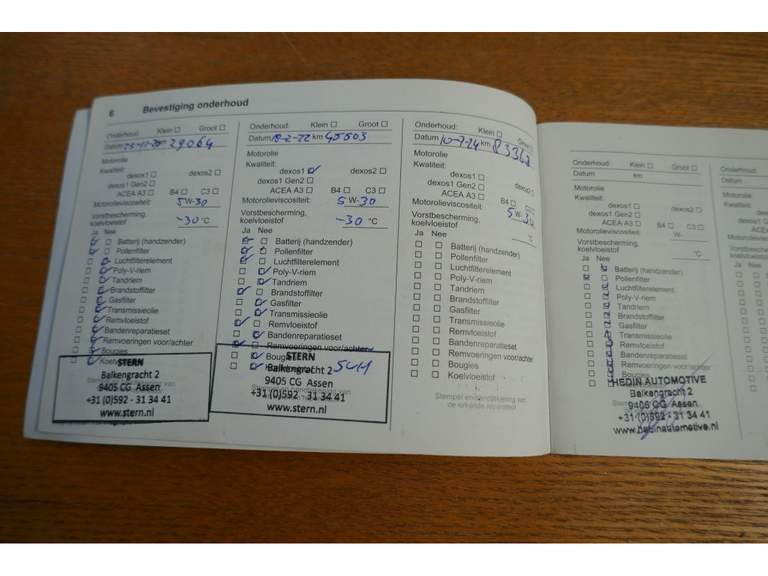 6 Bevestiging onderhoud
Onderhoud: Klein Groot
Datum km 29064
Motorolie
Kwaliteit:
dexos1 dexos2
dexos1 Gen2
ACEA A3 B4 C3
Motorolieviscositeit: 5W-30
Vorstbescherming,
koelvloeistof -30 °C
Ja Nee
Batterij (handzender)
Pollenfilter
Luchtfilterelement
Poly-V-riem
Tandriem
Brandstoffilter
Gasfilter
Transmissieolie
Remvloeistof
Bandenreparatieset
Remvoeringen voor/achter
Bougies
Koelvloeistof
STERN
Balkengracht 2
9405 CG Assen
+31 (0)592 - 31 34 41
www.stern.nl
Onderhoud: Klein Groot
Datum 18-2-22 km 45503
Motorolie
Kwaliteit:
dexos1 dexos2
dexos1 Gen2
ACEA A3 B4 C3
Motorolieviscositeit: 5W-30
Vorstbescherming,
koelvloeistof -30 °C
Ja Nee
Batterij (handzender)
Pollenfilter
Luchtfilterelement
Poly-V-riem
Tandriem
Brandstoffilter
Gasfilter
Transmissieolie
Remvloeistof
Bandenreparatieset
Remvoeringen voor/achter
Bougies
STERN
Balkengracht 2
9405 CG Assen
+31 (0)592 - 31 34 41
www.stern.nl
Onderhoud: Klein Groot
Datum 10-7-24 km
Motorolie
Kwaliteit:
dexos1
dexos1 Gen2
ACEA A3 B4
Motorolieviscositeit: 5W-30
Vorstbescherming,
koelvloeistof °C
Ja Nee
Batterij (handzender)
Pollenfilter
Luchtfilterelement
Poly-V-riem
Tandriem
Brandstoffilter
Gasfilter
Transmissieolie
Remvloeistof
Bandenreparatieset
Remvoeringen voor/achter
Bougies
Koelvloeistof
Stempel en handtekening van
de erkende reparateur
Onderhoud: Klein Groot
Datum km
Motorolie
Kwaliteit:
dexos1 dexos2
dexos1 Gen2
ACEA A3 B4 C3
Motorolieviscositeit: W-
Vorstbescherming,
koelvloeistof °C
Ja Nee
Batterij (handzender)
Pollenfilter
Luchtfilterelement
Poly-V-riem
Tandriem
Brandstoffilter
Gasfilter
Transmissieolie
Remvloeistof
Bandenreparatieset
Remvoeringen voor/achter
Bougies
Koelvloeistof
HEDIN AUTOMOTIVE
Balkengracht 2
9405 CG Assen
+31 (0)592 - 31 34 41
www.hedinautomotive.nl
Onderhoud:
Datum
Motorolie
Kwaliteit: